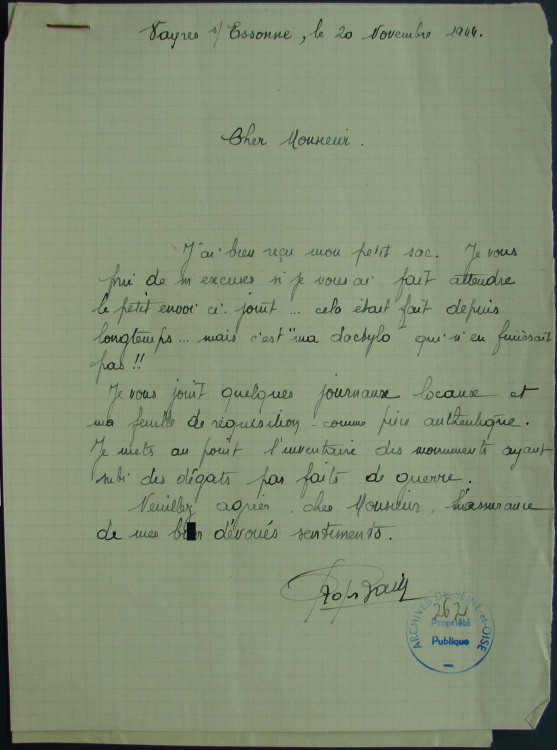 Vayres s/ Essonne, le 20 Novembre 1944.
Cher Monsieur.
J'ai bien reçu mon petit sac. Je vous
prie de m'excuser si je vous ai fait attendre
le petit envoi ci-joint... cela était fait depuis
longtemps... mais c'est "ma dactylo" qui n'en finissait
pas!!
Je vous joint quelques journaux locaux et
ma feuille de réquisition - comme pièce authentique.
Je mets au point l'inventaire des monuments ayant
subi des dégats par faits de guerre.
Veuillez agréer, cher Monsieur, l'assurance
de mes bien dévoués sentiments.
ARCHIVES DE SEINE-et-OISE
Propriété
Publique